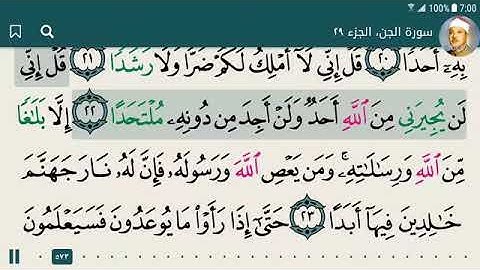 100% 7:00
سورة الجن، الجزء ٢٩
بِهِۦٓ أَحَدًا ٢٠ قُلْ إِنِّي لَآ أَمْلِكُ لَكُمْ ضَرًّا وَلَا رَشَدًا ٢١ قُلْ إِنِّي
لَن يُجِيرَنِي مِنَ ٱللَّهِ أَحَدٌ وَلَنْ أَجِدَ مِن دُونِهِۦ مُلْتَحَدًا ٢٢ إِلَّا بَلَٰغًا
مِّنَ ٱللَّهِ وَرِسَٰلَٰتِهِۦۚ وَمَن يَعْصِ ٱللَّهَ وَرَسُولَهُۥ فَإِنَّ لَهُۥ نَارَ جَهَنَّمَ
خَٰلِدِينَ فِيهَآ أَبَدًا ٢٣ حَتَّىٰٓ إِذَا رَأَوْا۟ مَا يُوعَدُونَ فَسَيَعْلَمُونَ
٥٧٣